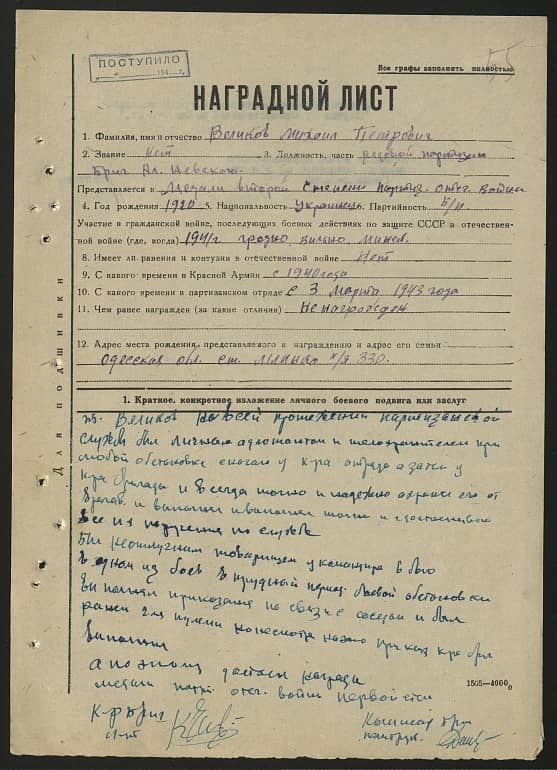 55
ПОСТУПИЛО
194 г.
Все графы заполнять полностью
НАГРАДНОЙ ЛИСТ
1. Фамилия, имя и отчество Великов Михаил Петрович
2. Звание Нет 3. Должность, часть рядовой партизан
Бриг Ал. Невского.
Представляется к Медали второй степени Партиз. Отеч. войны
4. Год рождения 1920 5. Национальность Украинец. Партийность Б/п
Участие в гражданской войне, последующих боевых действиях по защите СССР в отечествен-
ной войне (где, когда) 1941 г. гродно, вильно, минск.
8. Имеет ли ранения и контузии в отечественной войне Нет
9. С какого времени в Красной Армии с 1940 года
10. С какого времени в партизанском отряде с 3 Марта 1943 года
11. Чем ранее награжден (за какие отличия) Не награжден
12. Адрес места рождения, представляемого к награждению и адрес его семьи
Одесская обл. ст. п/я 330.
Для подшивки
1. Краткое, конкретное изложение личного боевого подвига или заслуг
т. Великов на всей протяжении партизанской
службы был личным адютантом и телохранителем при
любой обстановке сначала у к-ра отряда а затем у
к-ра бригады и всегда точно и надежно охранял его от
врагов и выполнял точно и
все их поручения по службе
Был неотлучным товарищем у командира в бою
в одном из боев в трудный период боевой обстановки
выполняя приказания по связи с соседом и был
ранен 2мя пулями но несмотря на это приказ к-ра бриг
выполнил
а поэтому достоин награды
медали парт. отеч. войны первой степ
1505—4000
К-р бриг
Комиссар бриг